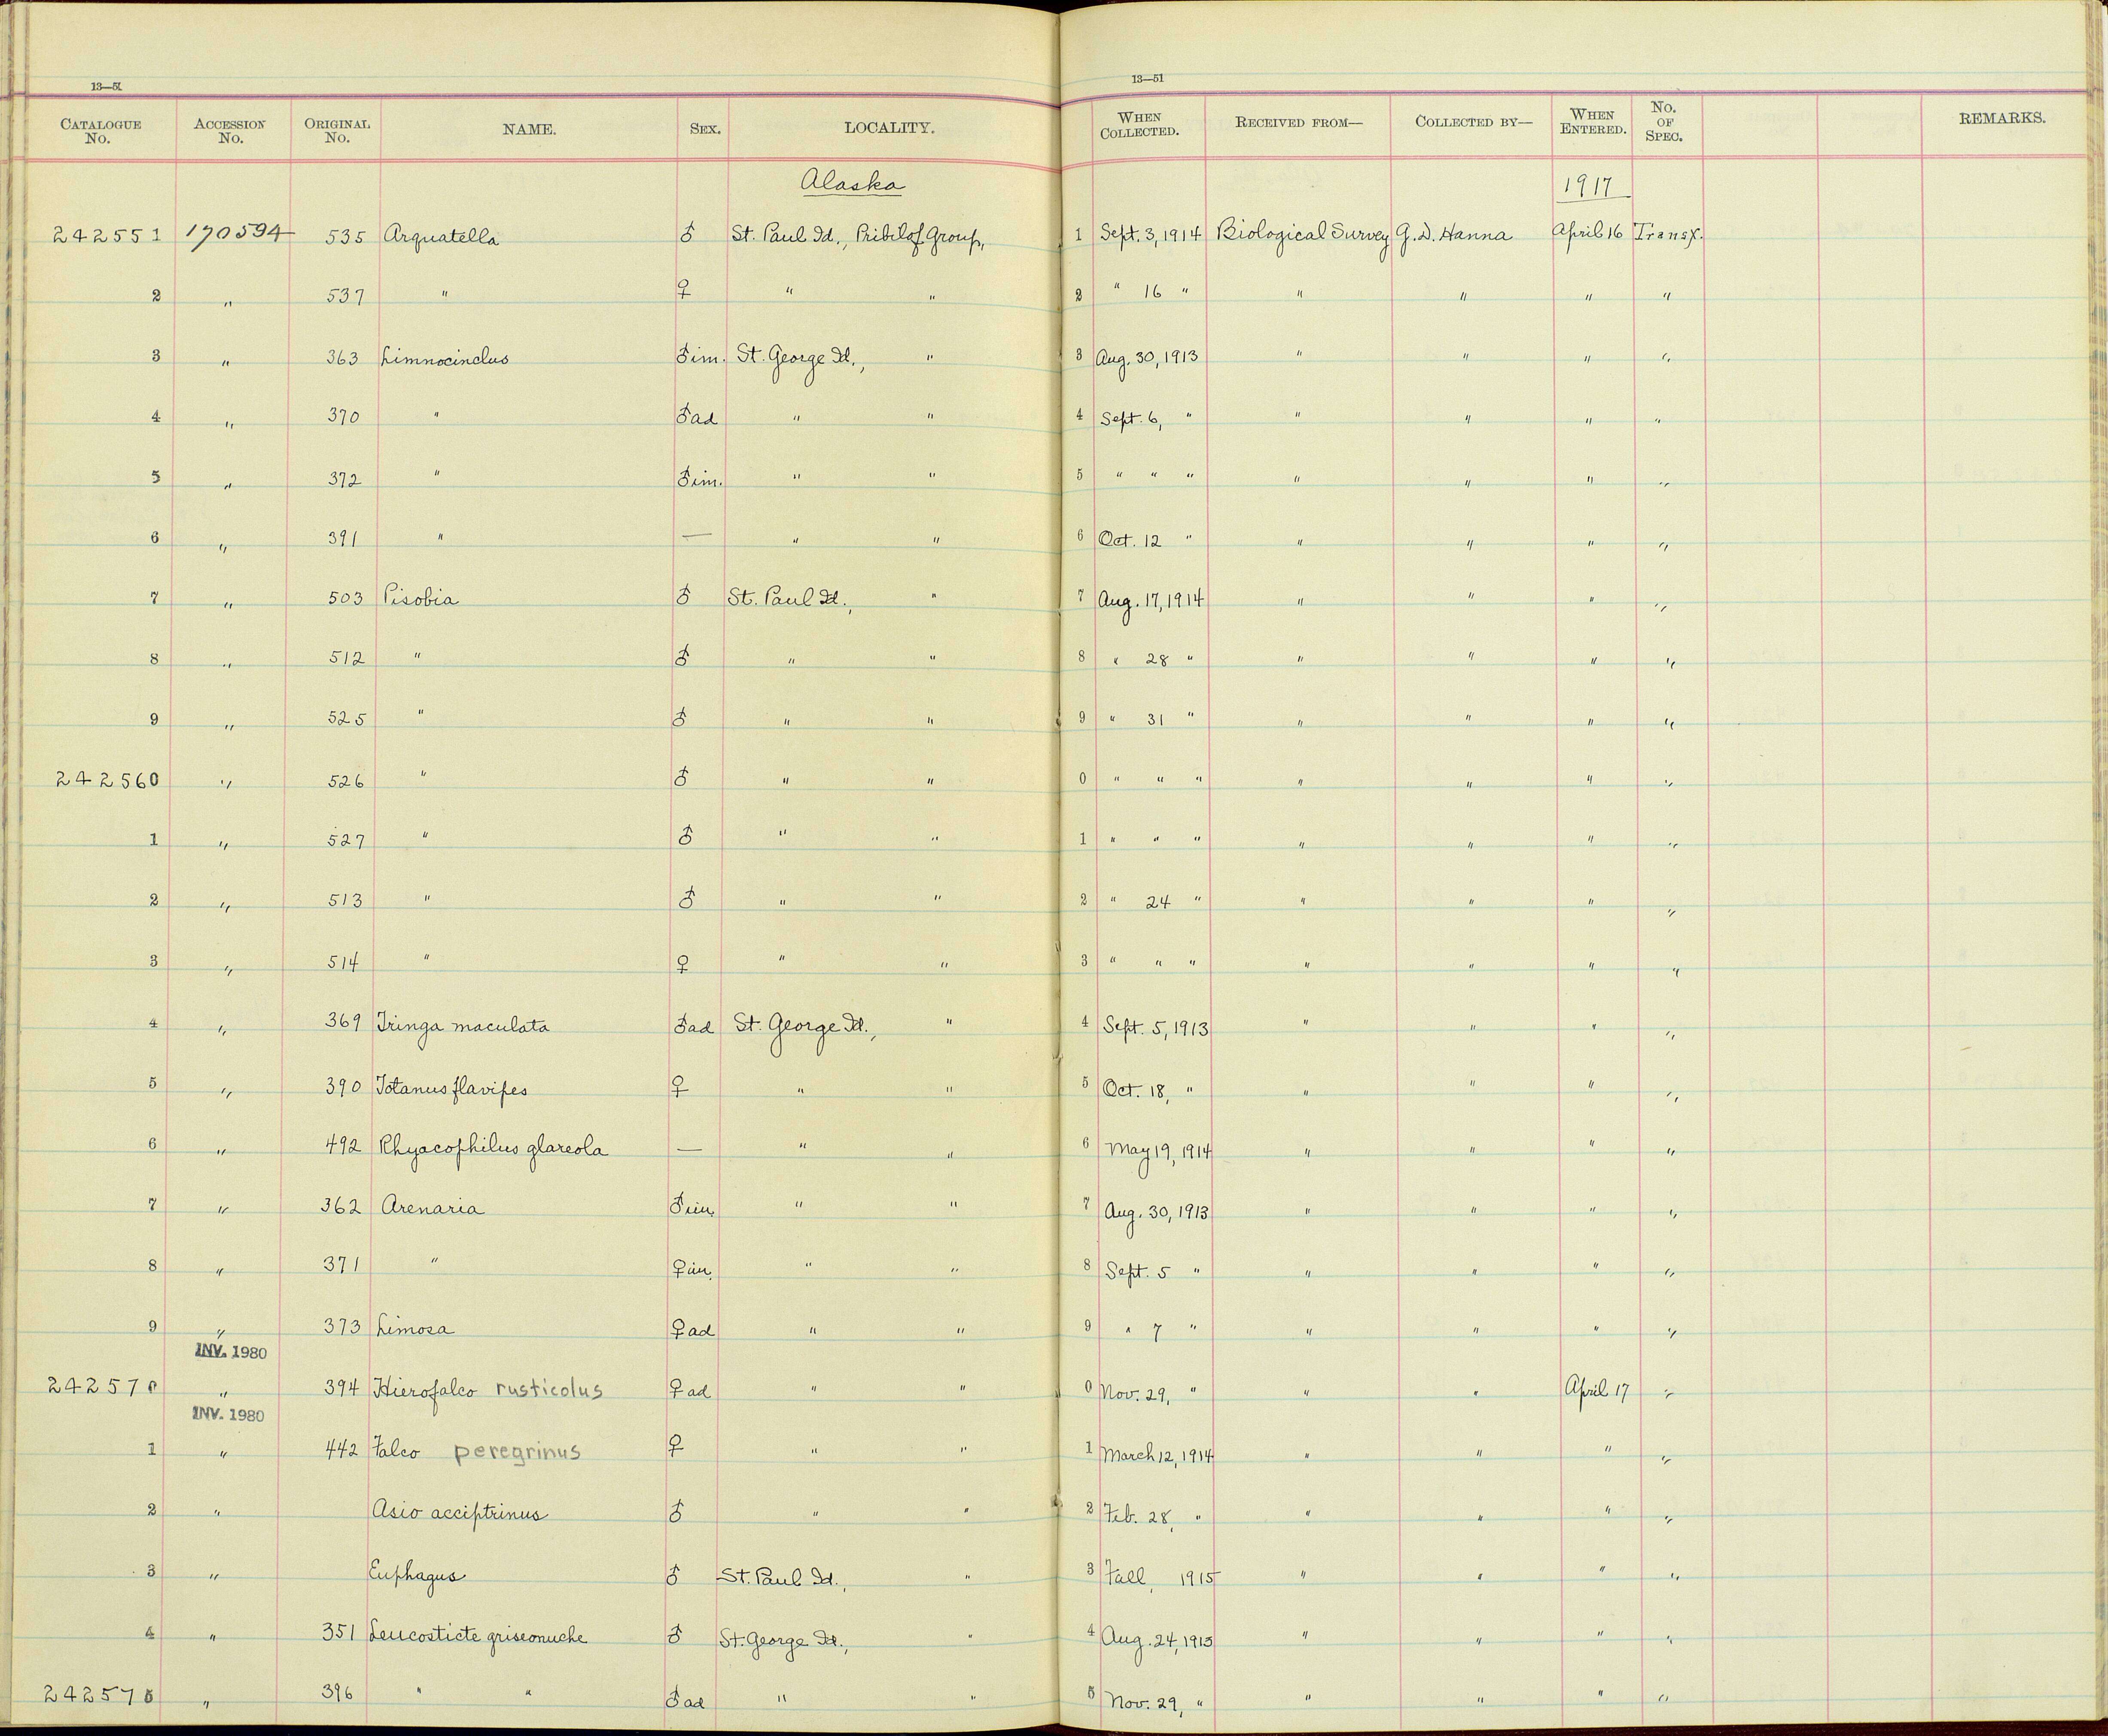 13—51 13—51
CATALOGUE No. ACCESSION No. ORIGINAL No. NAME. SEX. LOCALITY. WHEN COLLECTED. RECEIVED FROM— COLLECTED BY— WHEN ENTERED. No. OF SPEC. REMARKS.
Alaska 1917
242551 170594 535 Arquatella ♂ St. Paul Id., Pribilof Group, 1 Sept. 3, 1914 Biological Survey G. D. Hanna April 16 Transf.
2 " 537 " ♀ " " 2 " 16 " " " " "
3 " 363 Limnocinclus ♂ im. St. George Id., " 3 Aug. 30, 1913 " " " "
4 " 370 " ♂ ad " " 4 Sept. 6, " " " " "
5 " 372 " ♂ im. " " 5 " " " " " " "
6 " 391 " — " " 6 Oct. 12 " " " " "
7 " 503 Pisobia ♂ St. Paul Id., " 7 Aug. 17, 1914 " " " "
8 " 512 " ♂ " " 8 " 28 " " " " "
9 " 525 " ♂ " " 9 " 31 " " " " "
242560 " 526 " ♂ " " 0 " " " " " " "
1 " 527 " ♂ " " 1 " " " " " " "
2 " 513 " ♂ " " 2 " 24 " " " " "
3 " 514 " ♀ " " 3 " " " " " " "
4 " 369 Tringa maculata ♂ ad St. George Id., " 4 Sept. 5, 1913 " " " "
5 " 390 Totanus flavipes ♀ " " 5 Oct. 18, " " " " "
6 " 492 Rhyacophilus glareola — " " 6 May 19, 1914 " " " "
7 " 362 Arenaria ♂ im. " " 7 Aug. 30, 1913 " " " "
8 " 371 " ♀ im. " " 8 Sept. 5 " " " " "
9 " 373 Limosa ♀ ad " " 9 " 7 " " " " "
INV. 1980
242570 " 394 Hierofalco rusticolus ♀ ad " " 0 Nov. 29, " " " April 17 "
INV. 1980
1 " 442 Falco peregrinus ♀ " " 1 March 12, 1914 " " " "
2 " Asio acciptrinus ♂ " " 2 Feb. 28, " " " " "
3 " Euphagus ♂ St. Paul Id., " 3 Fall, 1915 " " " "
4 " 351 Leucosticte griseonuche ♂ St. George Id., " 4 Aug. 24, 1913 " " " "
242575 " 396 " " ♂ ad " " 5 Nov. 29, " " " " "